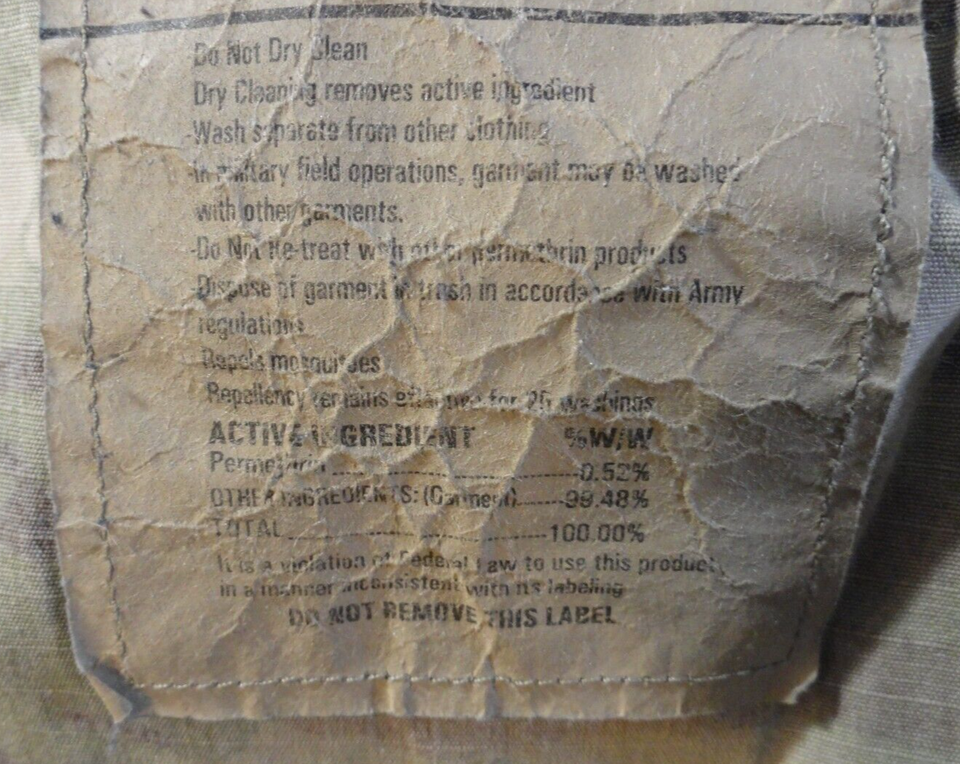 Do Not Dry Clean
Dry Cleaning removes active ingredient
-Wash separate from other clothing
-In military field operations, garment may be washed
with other garments.
-Do Not Re-treat with other permethrin products
-Dispose of garment in trash in accordance with Army
regulations
Repels mosquitoes
Repellency remains effective for 25 washings
ACTIVE INGREDIENT %W/W
Permethrin ........ 0.52%
OTHER INGREDIENTS: (Garment) ........ 99.48%
TOTAL ........ 100.00%
It is a violation of Federal Law to use this product
in a manner inconsistent with its labeling
DO NOT REMOVE THIS LABEL